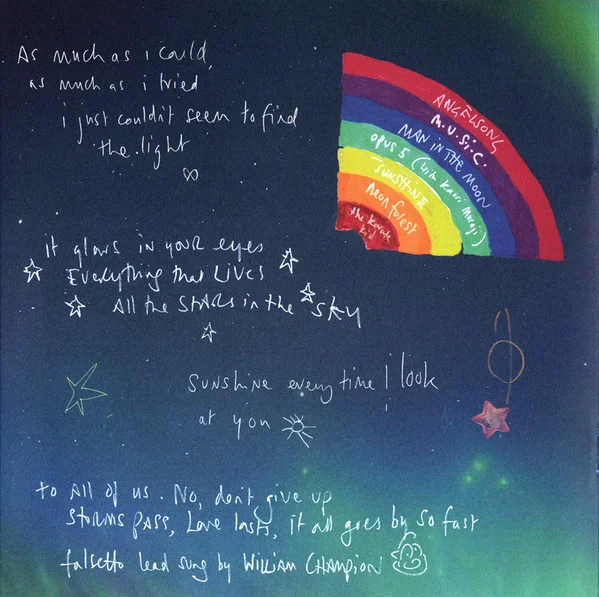 As much as i could,
as much as i tried
i just couldn't seem to find
the light
ANGELSONG
M.U.S.I.C.
MAN IN THE MOON
opus 5 (with Kaori Muraji)
SUNSHINE
neon forest
the karate
kid
it glows in your eyes
Everything that lives
All the stars in the sky
sunshine every time I look
at you
to All of us. No, don't give up
storms pass, Love lasts, it all goes by so fast
falsetto lead sung by William Champion